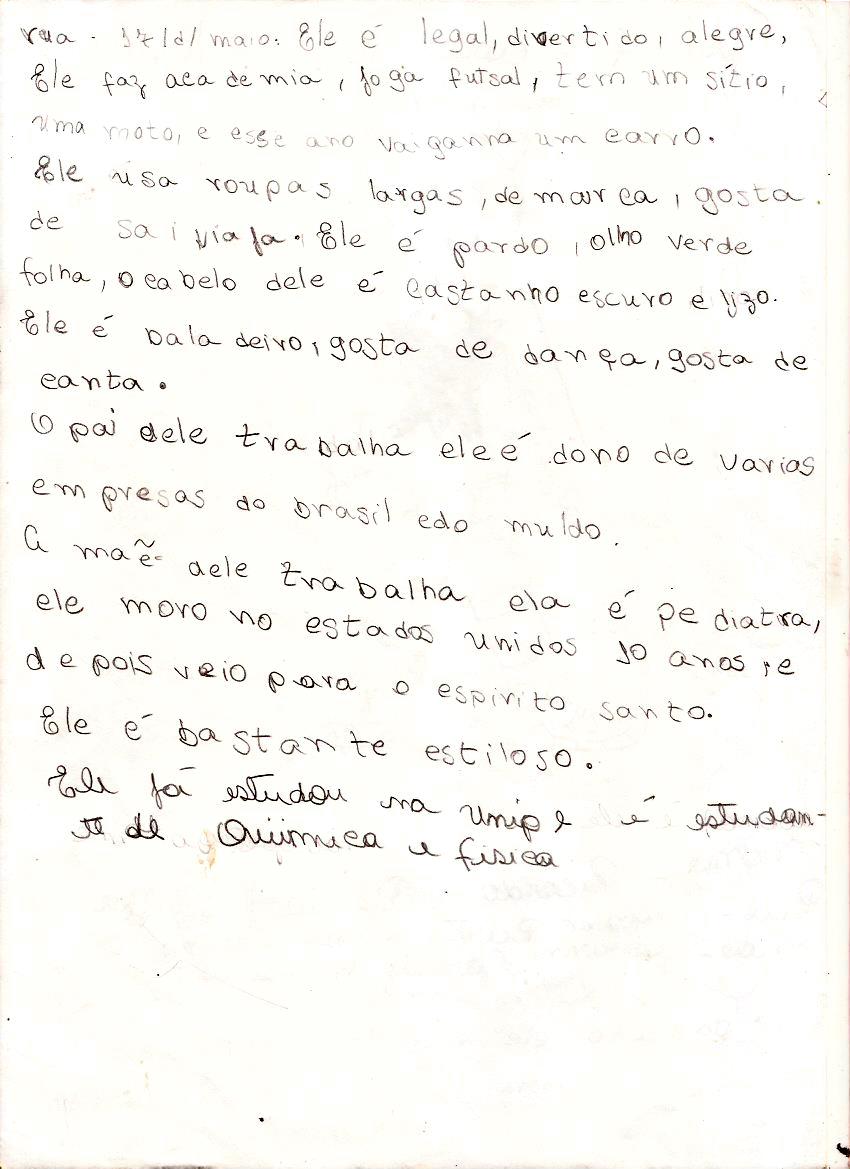 rua. 17/d/ maio. Ele é legal, divertido, alegre,
Ele faz academia, joga futsal, tem um sítio,
uma moto, e esse ano vai ganha um carro.
Ele usa roupas largas, de marca, gosta
de sai viaja. Ele é pardo, olho verde
folha, o cabelo dele é castanho escuro e lizo.
Ele é baladeiro, gosta de dança, gosta de
canta.
O pai dele trabalha ele é dono de varias
empresas do brasil e do muldo.
A maẽ dele trabalha ela é pediatra,
ele moro no estados unidos 10 anos, e
depois veio para o espirito santo.
Ele é bastante estiloso.
Ele já estudou na Unip e é estudan-
te de Química e fisica